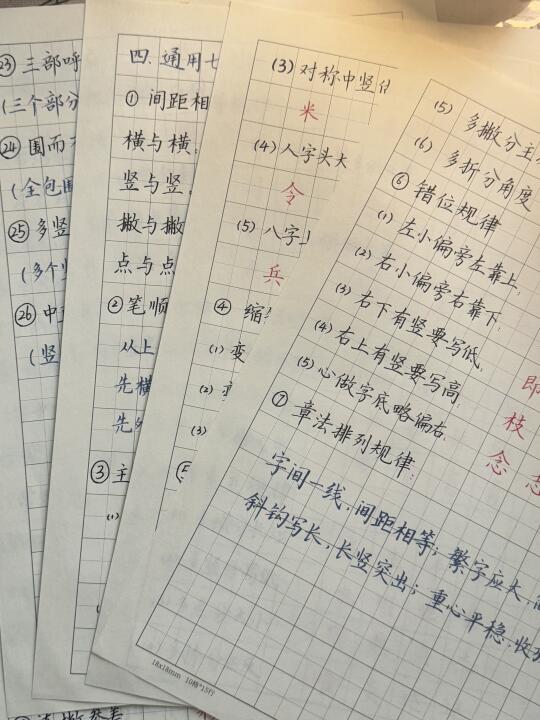 ㉓ 三部呼
(三个部分
㉔ 围而不
(全包围
㉕ 多竖
(多个
㉖ 中
(竖
四、通用七
① 间距相
横与横
竖与竖
撇与撇
点与点
② 笔顺
从上
先横
先外
③ 主
(1)
(3) 对称中竖
米
(4) 人字头大
令
(5) 八字
兵
④ 缩
(1) 变
(2)
(3)
(5) 多撇分主
(6) 多折分角度
⑥ 错位规律
(1) 左小偏旁左靠上;
(2) 右小偏旁右靠下;
(3) 右下有竖要写低;
(4) 右上有竖要写高; 即
(5) 心做字底略偏右; 枝
⑦ 章法排列规律: 念 志
字间一线,间距相等;繁字应大,
斜钩写长,长竖突出;重心平稳,收
18x18mm 10格*15行